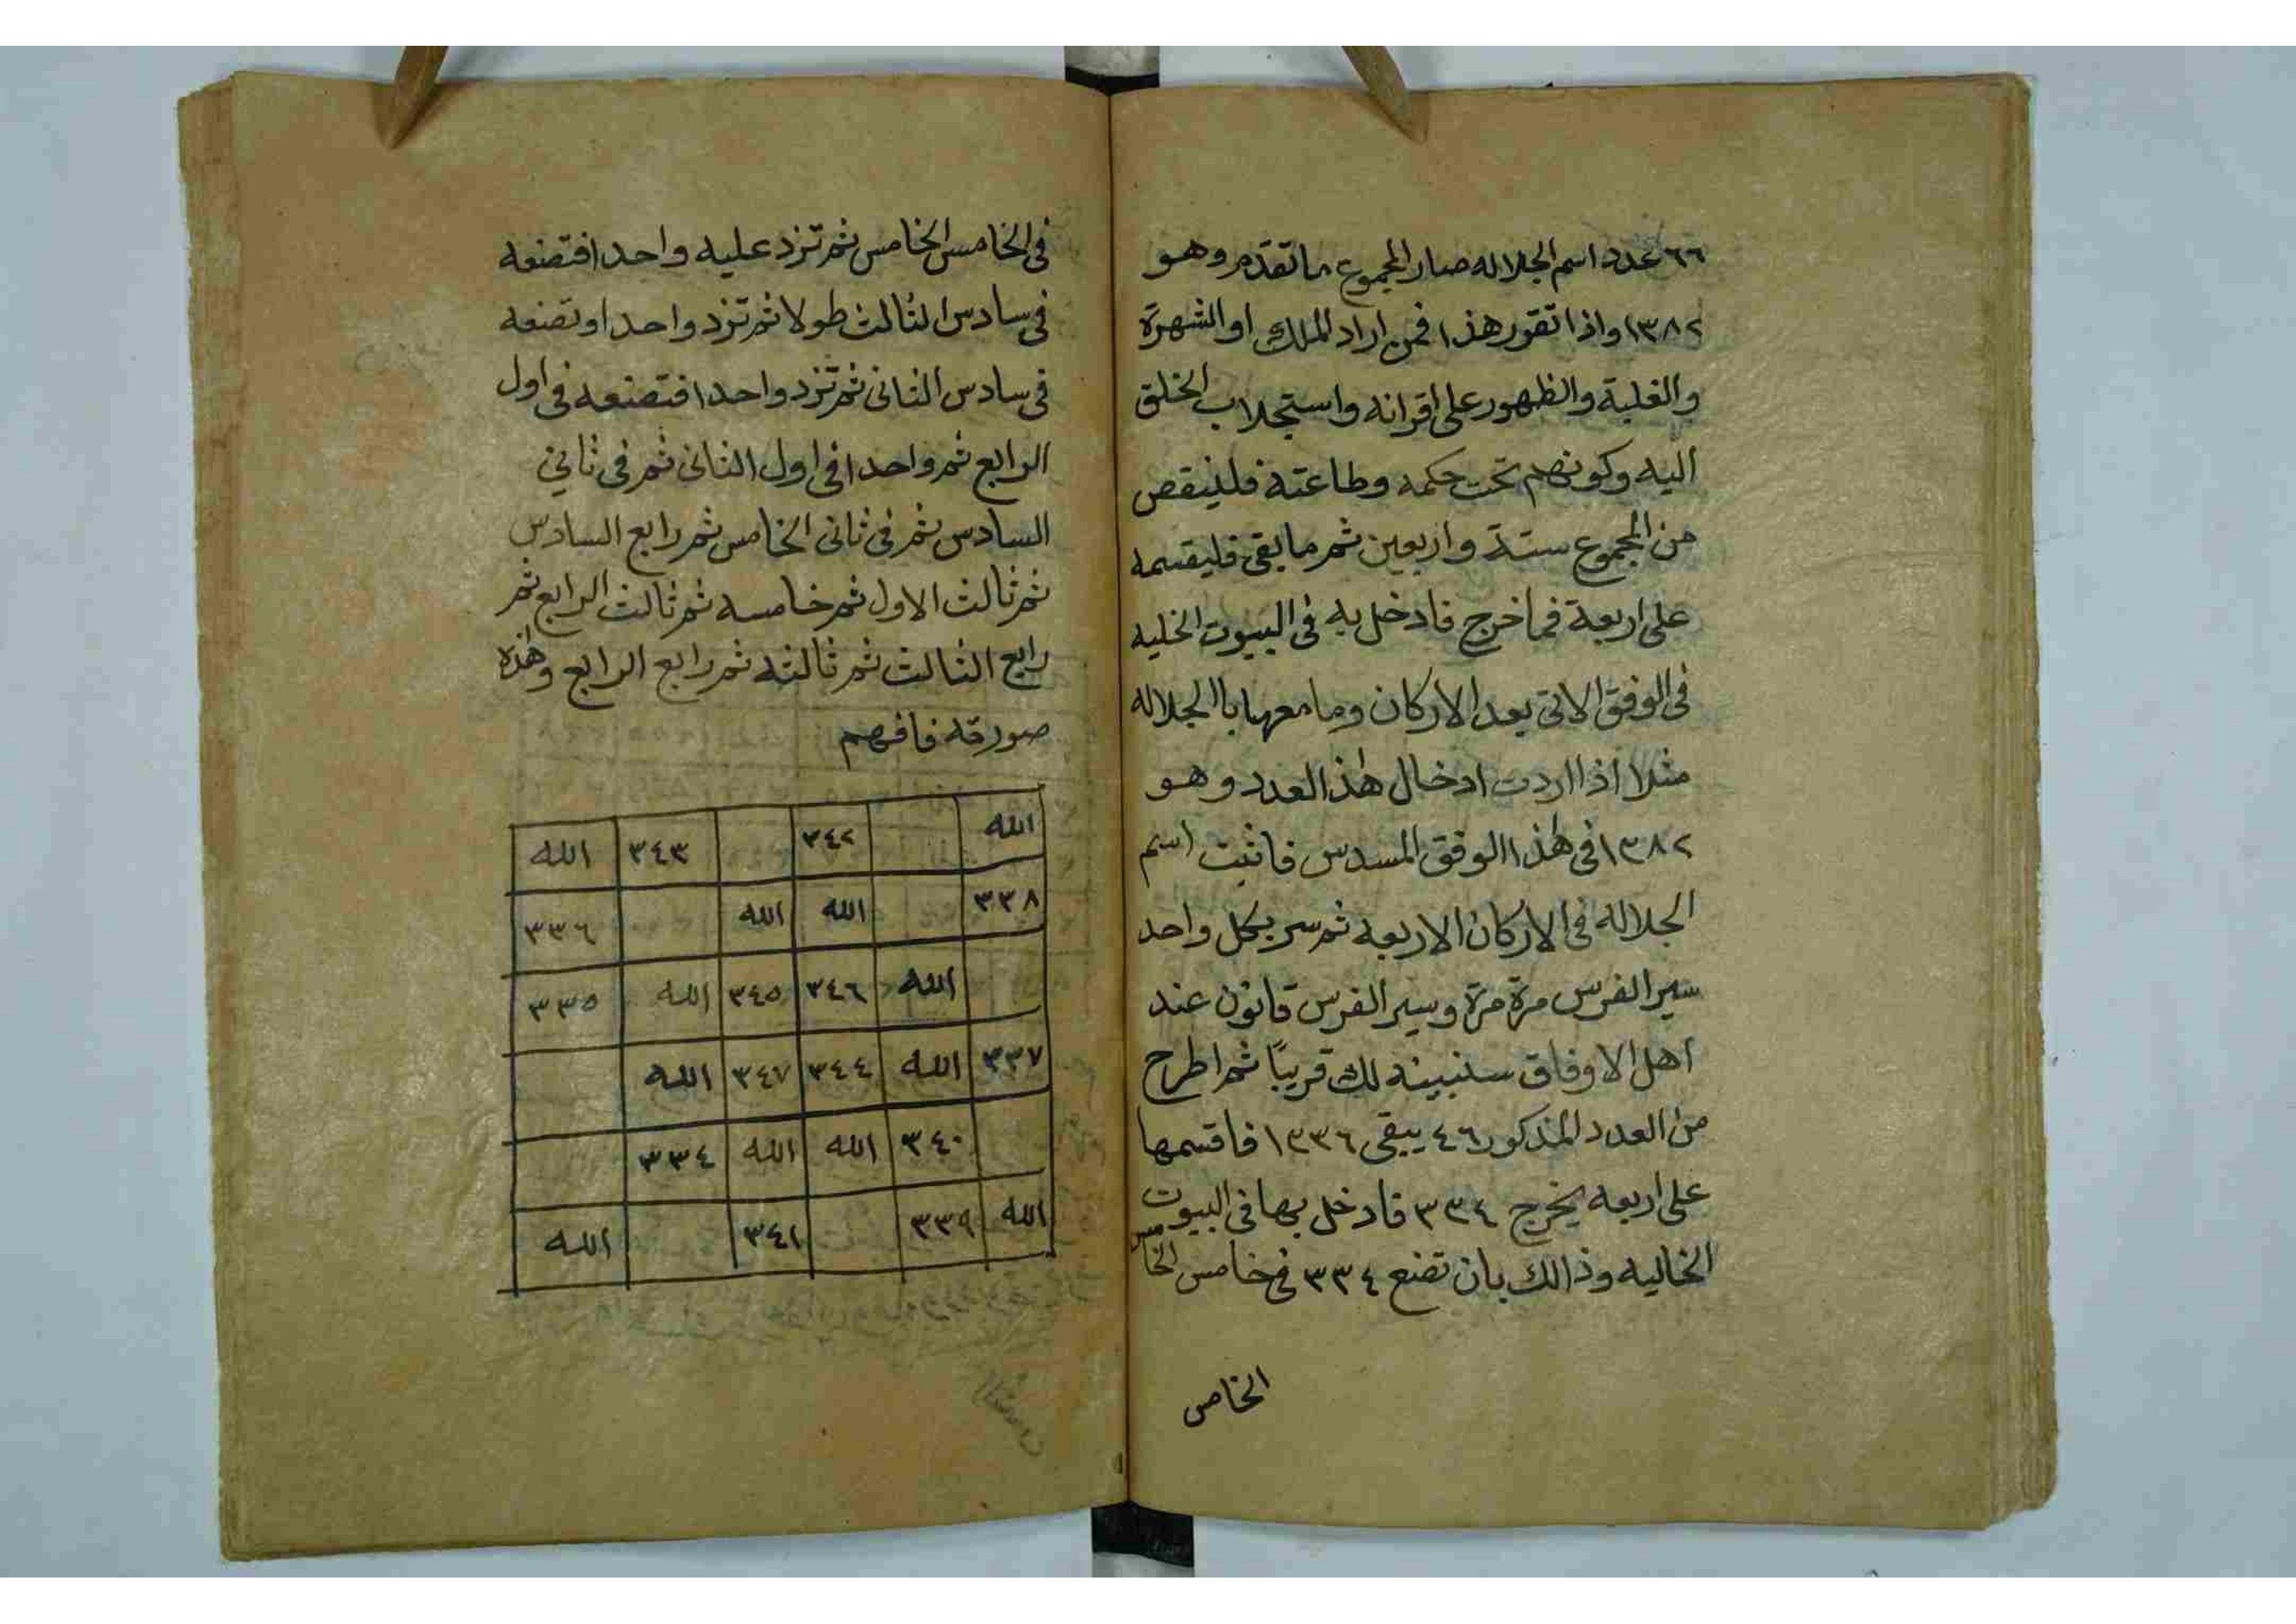 ٦٦ عدد اسم الجلاله صار المجموع ما تقدم وهو
١٣٨٢ واذا تقور هذا فمن اراد الملك او الشهرة
والغلبة والظهور على اقرانه واستجلاب الخلق
اليه وكونهم تحت حكمه وطاعته فلينقص
من المجموع ستة واربعين ثم ما بقى فليقسمه
على اربعة فما خرج فادخل به فى البيوت الخليه
فى الوفق الاتى بعد الاركان وما معهابا الجلاله
مثلا اذا اردت ادخال هذ العدد وهو
١٣٨٢ فى هذا الوفق المسدس فاثبت اسم
الجلاله فى الاركان الاربعه ثم سر بكل واحد
سير الفرس مرة مرة وسير الفرس قانون عند
اهل الاوفاق سنبينه لك قريبًا ثم اطرح
من العدد المذكور ٤٦ يبقى ١٣٣٦ فاقسمها
على اربعه يخرج ٣٣٤ فادخل بها فى البيوت
الخاليه وذالك بان تضع ٣٣٤ فى خامس الخامس
الخامس
فى الخامس الخامس ثم تزد عليه واحدا فتضعه
فى سادس الثالث طولا ثم تزد واحدا وتضعه
فى سادس الثانى ثم تزد واحدا فتضعه فى اول
الرابع ثم واحدا فى اول الثانى ثم فى ثاني
السادس ثم فى ثانى الخامس ثم رابع السادس
ثم ثالث الاول ثم خامسه ثم ثالث الرابع ثم
رابع الثالث ثم ثالثه ثم رابع الرابع وهذه
صورته فافهم
الله ٣٤٢ ٣٤٣ الله
٣٣٨ الله الله ٣٣٦
الله ٣٤٦ ٣٤٥ الله ٣٣٥
٣٣٧ الله ٣٤٤ ٣٤٧ الله
٣٤٠ الله الله ٣٣٤
الله ٣٣٩ ٣٤١ الله